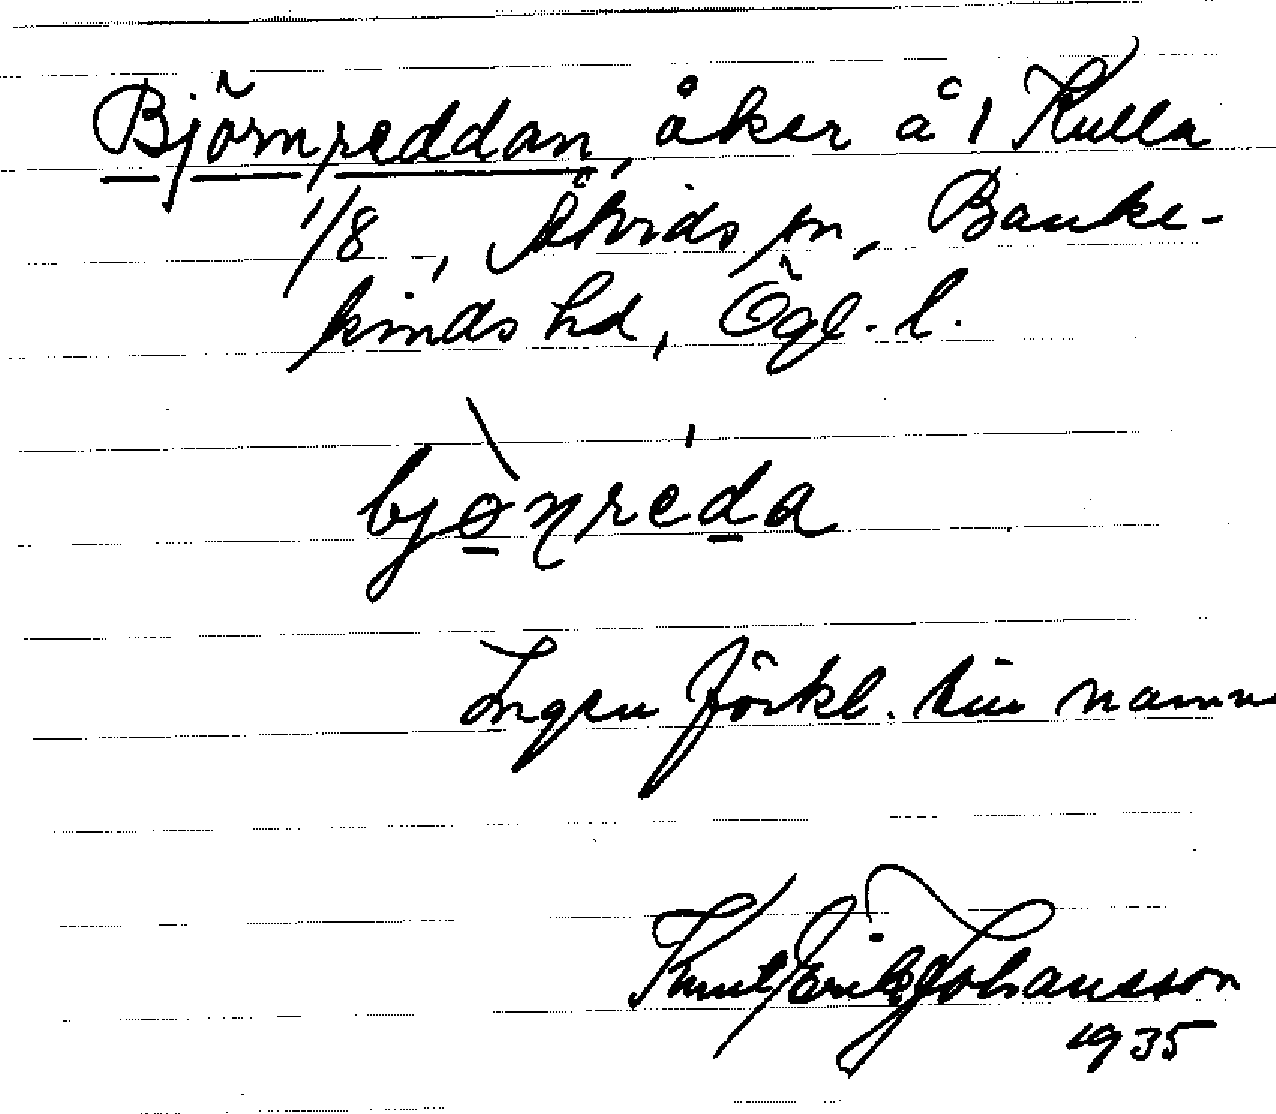 Björnreddan, åker å 1 Kulla
1/8, Åtvids sn, Banke-
kinds hd, Ögl. l.
bjònre̍da
Ingen förkl. till namne
Knut Erik Johansson
1935